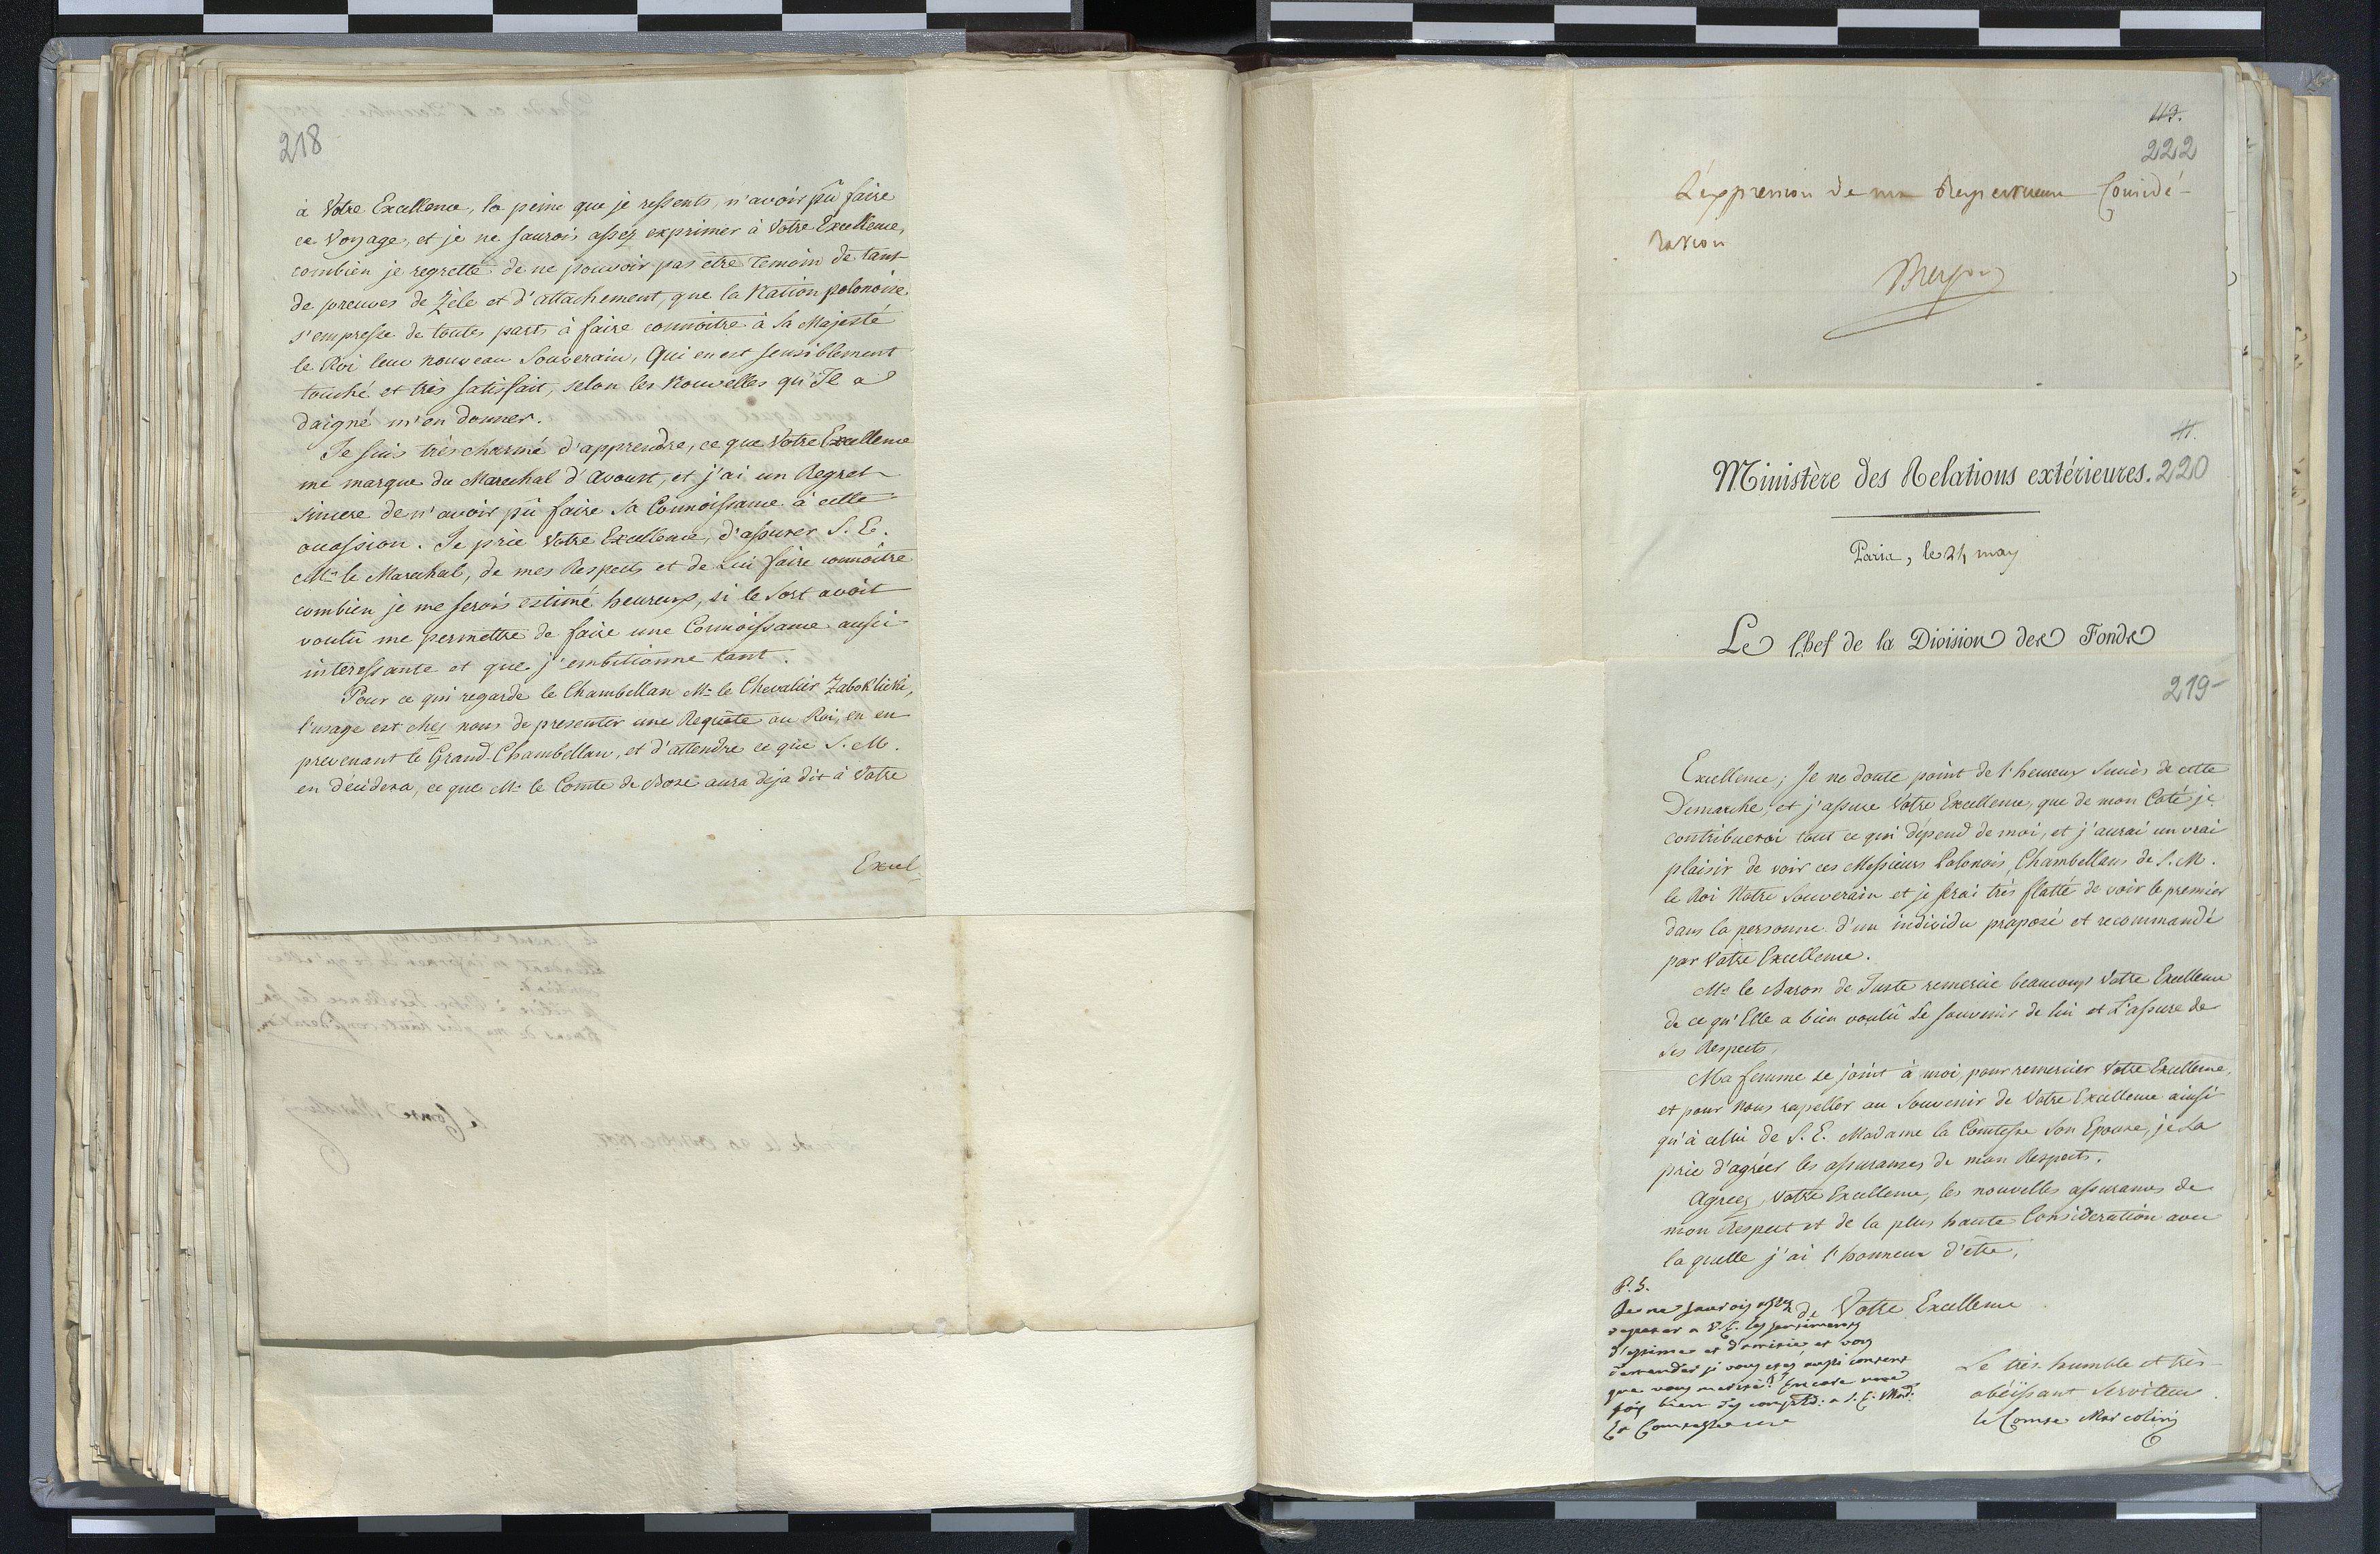 218
à Votre Excellence, la peine que je ressents, n'avoir pû faire
ce Voyage, et je ne saurois assez exprimer à Votre Excellence,
combien je regrette de ne pouvoir pas être temoin de tant
de preuves de Zèle et d'attachement, que la Nation polonoise
s'empresse de toutes parts à faire connoitre à Sa Majesté
le Roi leur nouveau Souverain, Qui en est sensiblement
touché et très satisfait, selon les Nouvelles qu'Il a
daigné m'en donner.
Je suis très charmé d'apprendre, ce que Votre Excellence
me marque du Marechal d'Avoust, et j'ai un Regret
sincere de n'avoir pû faire Sa Connoissance à cette
occassion. Je prie Votre Excellence, d'assurer S. E.
Mr. le Marechal, de mes Respects et de Lui faire connoître
combien je me serois estimé heureux, si le Sort avoit
voulu me permettre de faire une Connoissance aussi
interessante et que j'embitionne tant.
Pour ce qui regarde le Chambellan Mr. le Chevalier Zaboklicki,
l'usage est chez nous de presenter une Requête au Roi, en en
prevenant le Grand-Chambellan, et d'attendre ce que S. M.
en décidera, ce que Mr. le Comte de Bose aura déja dit à Votre
Excel
117.
222
L'expression de ma Respectueuse Considé-
ration
11.
Ministère des Relations extérieures. 220
Paris, le 24 may
Le Chef de la Division des Fonds
219
Excellence; Je ne doute point de l'heureux Succès de cette
Démarche, et j'assure Votre Excellence, que de mon Coté je
contribuerai tout ce qui dépend de moi, et j'aurai un vrai
plaisir de voir ces Messieurs Polonois, Chambellans de S. M.
le Roi Notre Souverain et je serai très flatté de voir le premier
dans la personne d'un individu proposé et recommandé
par Votre Excellence.
Mr. le Baron de Juste remercie beaucoup Votre Excellence
de ce qu'Elle a bien voulû Se souvenir de lui et L'assure de
ses Respects.
Ma femme se joint à moi, pour remercier Votre Excellence,
et pour nous rapeller au Souvenir de Votre Excellence ainsi
qu'à celui de S. E. Madame la Comtesse Son Epouse, je La
prie d'agréer les assurances de mon Respects.
Agreez, Votre Excellence, les nouvelles assurances de
mon Respect et de la plus haute Consideration avec
la quelle j'ai l'honneur d'être,
de Votre Excellence
P. S.
Je ne saurois assez
repeter a V. E. les sentiments
d'estime et d'amitié et vous
demander si vous etes aussi content
que vous merité? Encore une
fois bien des complts: a S. E. Mad:
La Comtesse
Le très-humble et très-
obéissant Serviteur.
le Comte Marcolini